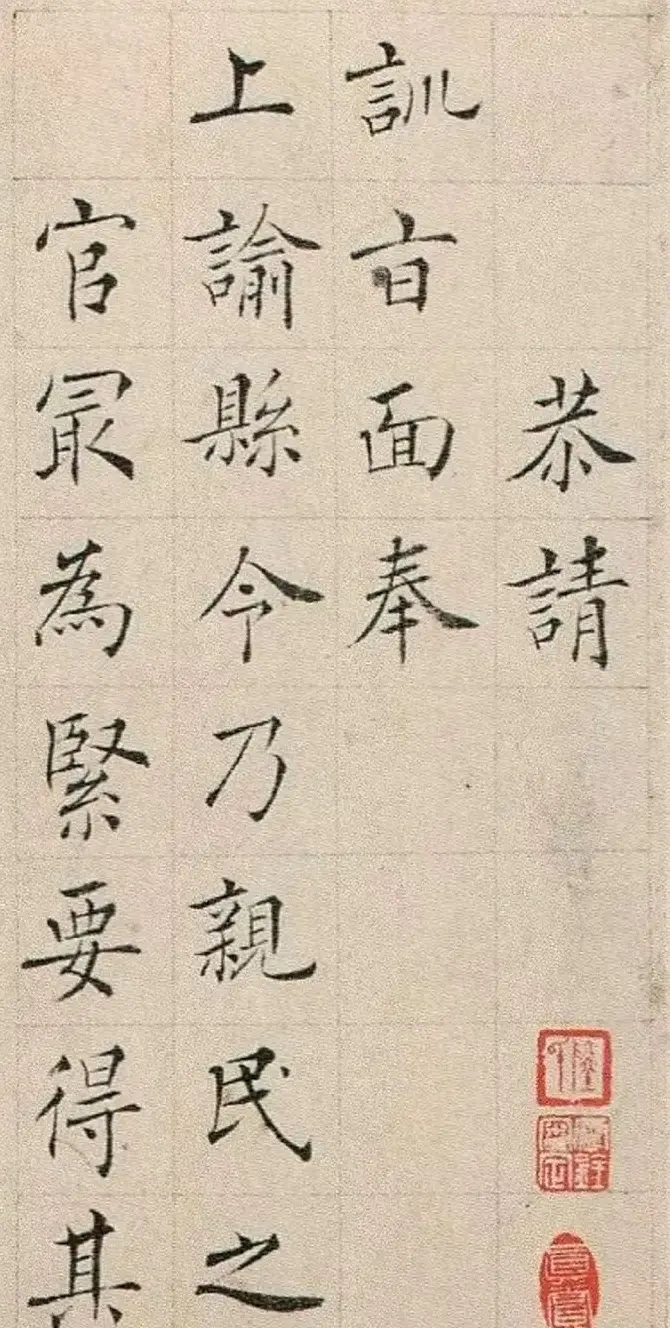 恭請
訓㫖面奉
上諭縣令乃親民之
官最為緊要得其